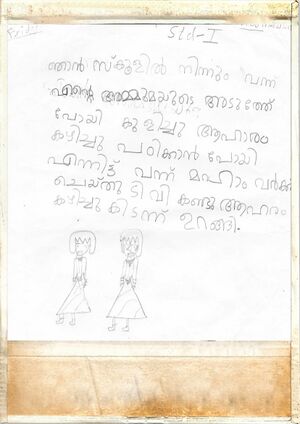 Friday
Std-I
ഞാൻ സ്കൂളിൽ നിന്നും വന്ന്
എൻ്റെ അമ്മുമയുടെ അടുത്തേ
പോയി കുളിച്ചു ആഹാരം
കഴിച്ചു പഠിക്കാൻ പോയി
എന്നിട്ട് വന്ന് മഹാം വർക്ക്
ചെയ്തു ടി വി കണ്ടു ആഹരം
കഴിച്ചു കിടന്ന് ഉറങ്ങി.